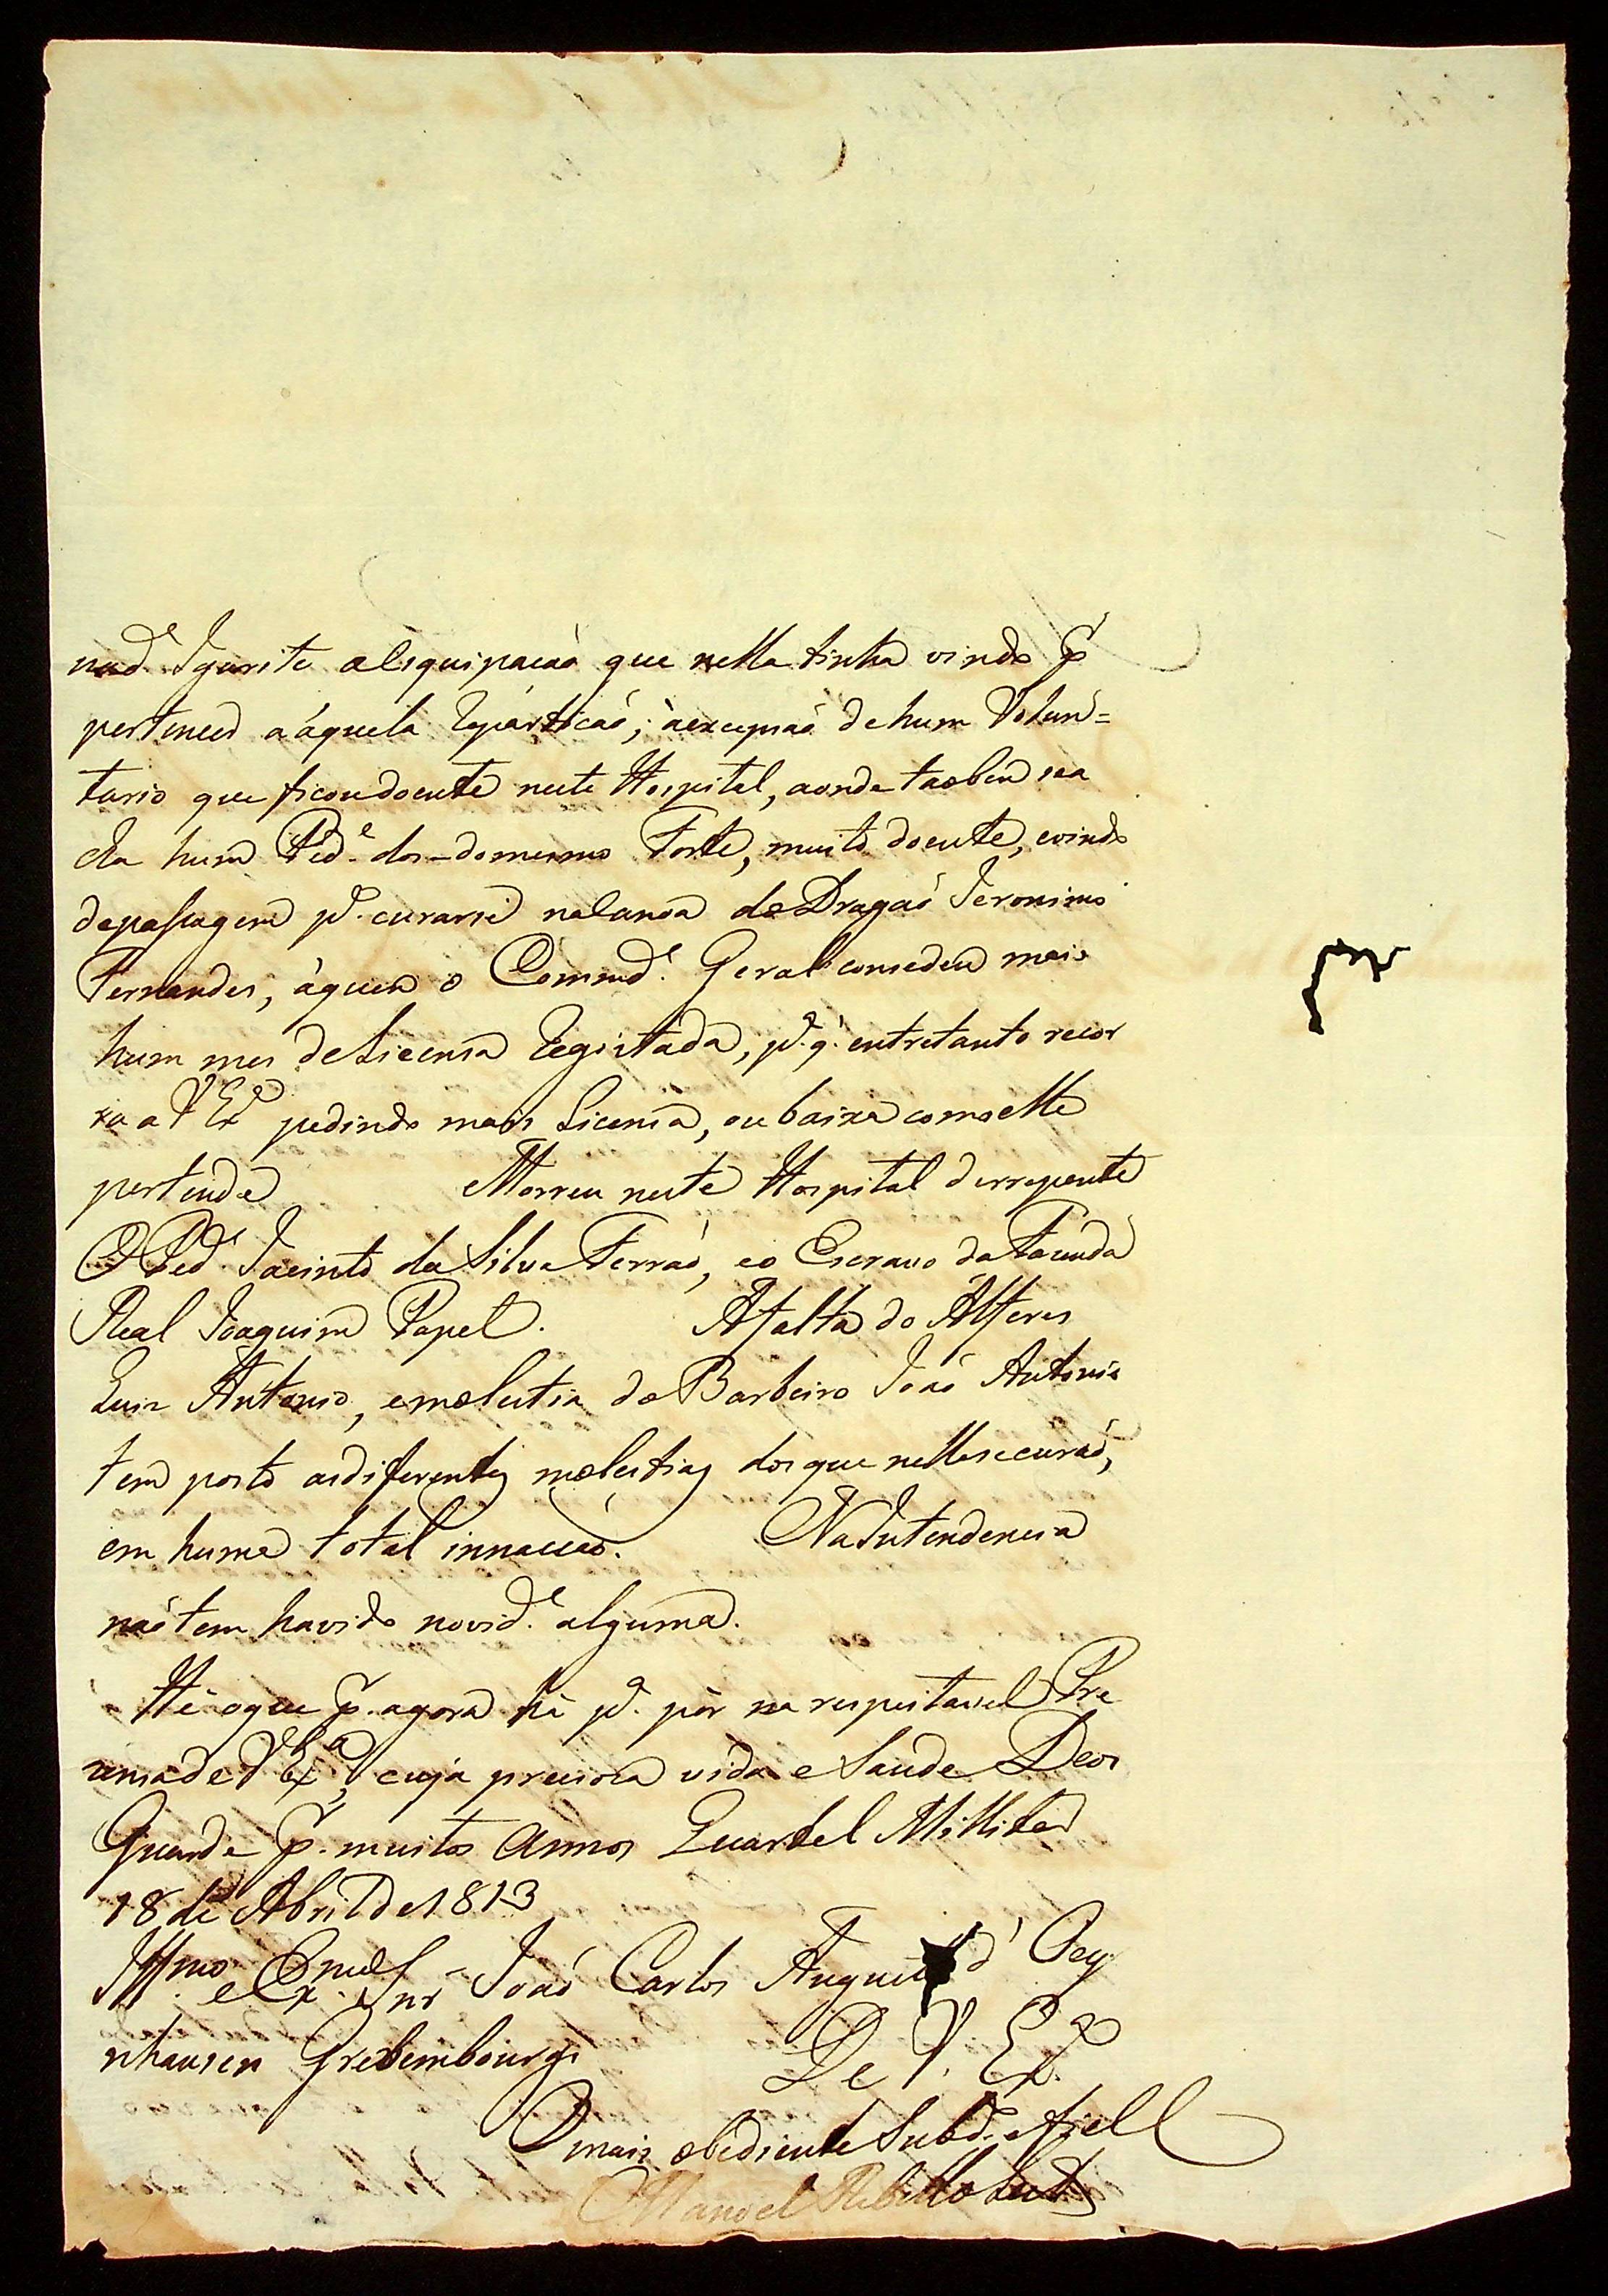 nad.e Igarite aliquipacaõ que nella tinha vindo p.r
pertencer a áquela Repárticaõ; áexcepsaõ de hum Volun=
tario que ficou doente neste Hospital, aonde taobem sea
cha hum Ped.e dos do mesmo Forte, muito doente, evindo
depassagem p.a curarse na Canoa do Dragaõ Jeronimo
Fernandes, áquem o Commd.e Geral consedeu mais
hum mes de Licensa Registada, p.a q. entretanto recor
ra a V Ex.a pedindo mais Licensa, ou baixa como elle
pertende Morreu neste Hospital derrepente
O Ped.e Jacinto da Silva Ferraõ, eo Escravo da Facenda
Real Joaquim Papel. A falta do Alferes
Luis Antonio, emolestia do Barbeiro Joaõ Antonio
tem posto as diferentes molestias dos que nelle se curaõ,
em huma total innacçaõ. Na Intendencia
naõ tem havido novid.e alguma.
Hé oque p.r agora há p.a pór na respeitavel Pre
zensa de V Ex.a, cuja preciosa vida e Saude Deos
Guarde p.r muitos Annos Quartel Millitar
18 de Abril de 1813
Ill.mo e Ex.mo Snr Joaõ Carlos Augusto d' Oey
nhausen Grevembourg
De V. Ex.a
O mais obediente Subd.o e fiell
Manoel Rebello